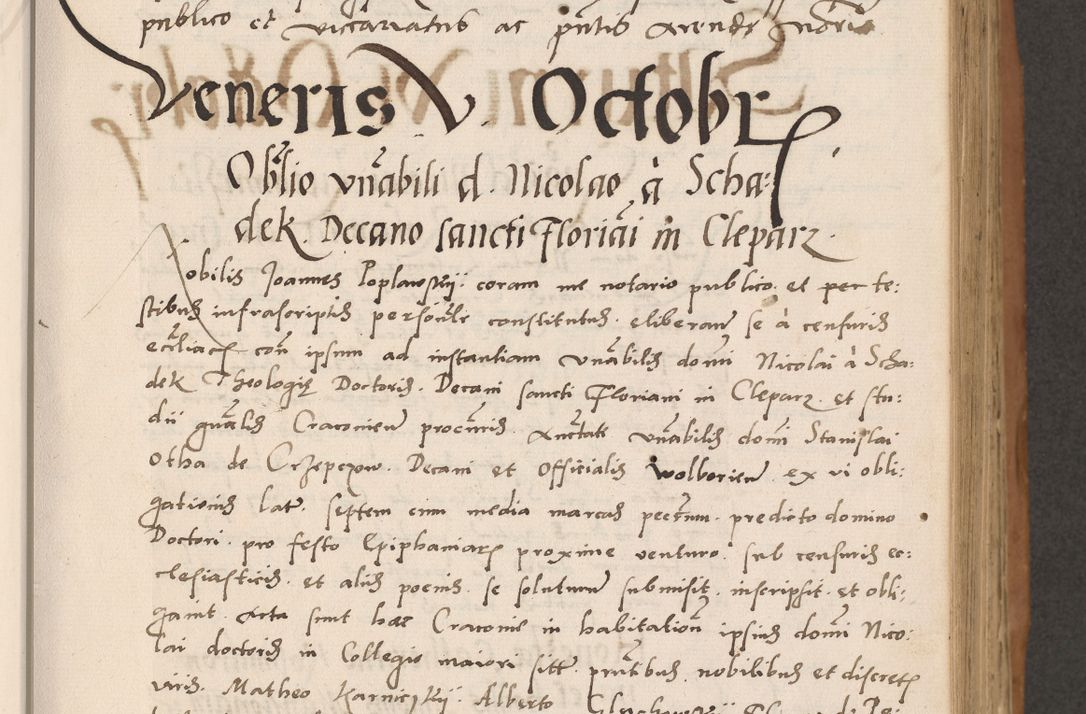 publico et viccariatus ac pñtis arende norio
Veneris V. Octobr
Obl̃io vñabili d. Nicolao à Scha-
dek. Decano sancti Floriãi in Cleparz.
Nobilis Joannes Poplawskij. coram me notario publico. et per te:
stibus infrascriptis personlr constitutus. eliberanꝰ se à censuris
eccl̃iacȝ con ipsum ad instantiam vñabilis domi Nicolai à Scha:
dek Theologiȩ Doctoris. Decani sancti Floriani in Cleparz. et stu:
dii gñalis Cracovien procuris. auctate vñabilis domi Stanislai
Otha de Crzepczow. Decani et Officialis Wolborien. ex vi obli:
gationis latr. septem cum media marcas peccum. predicto domino
Doctori. pro festo Epiphaniarȝ proxime venturo. sub censuris ec:
clesiasticis. et aliis poenis. se soluturum submisit. inscripsit. et obli:
gavit. Acta sunt haec Cracovie in habitation ipsius domi Nico:
lai doctoris in Collegio maiori sittr prñtibus nobilibus et discretȝ
viris. Matheo Karniczkij. Alberto